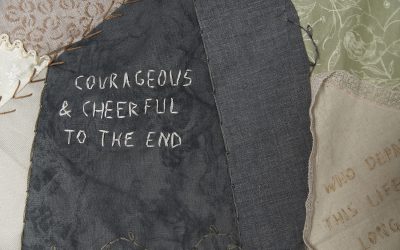 COURAGEOUS
& CHEERFUL
TO THE END
WHO DEPA
THIS LIFE